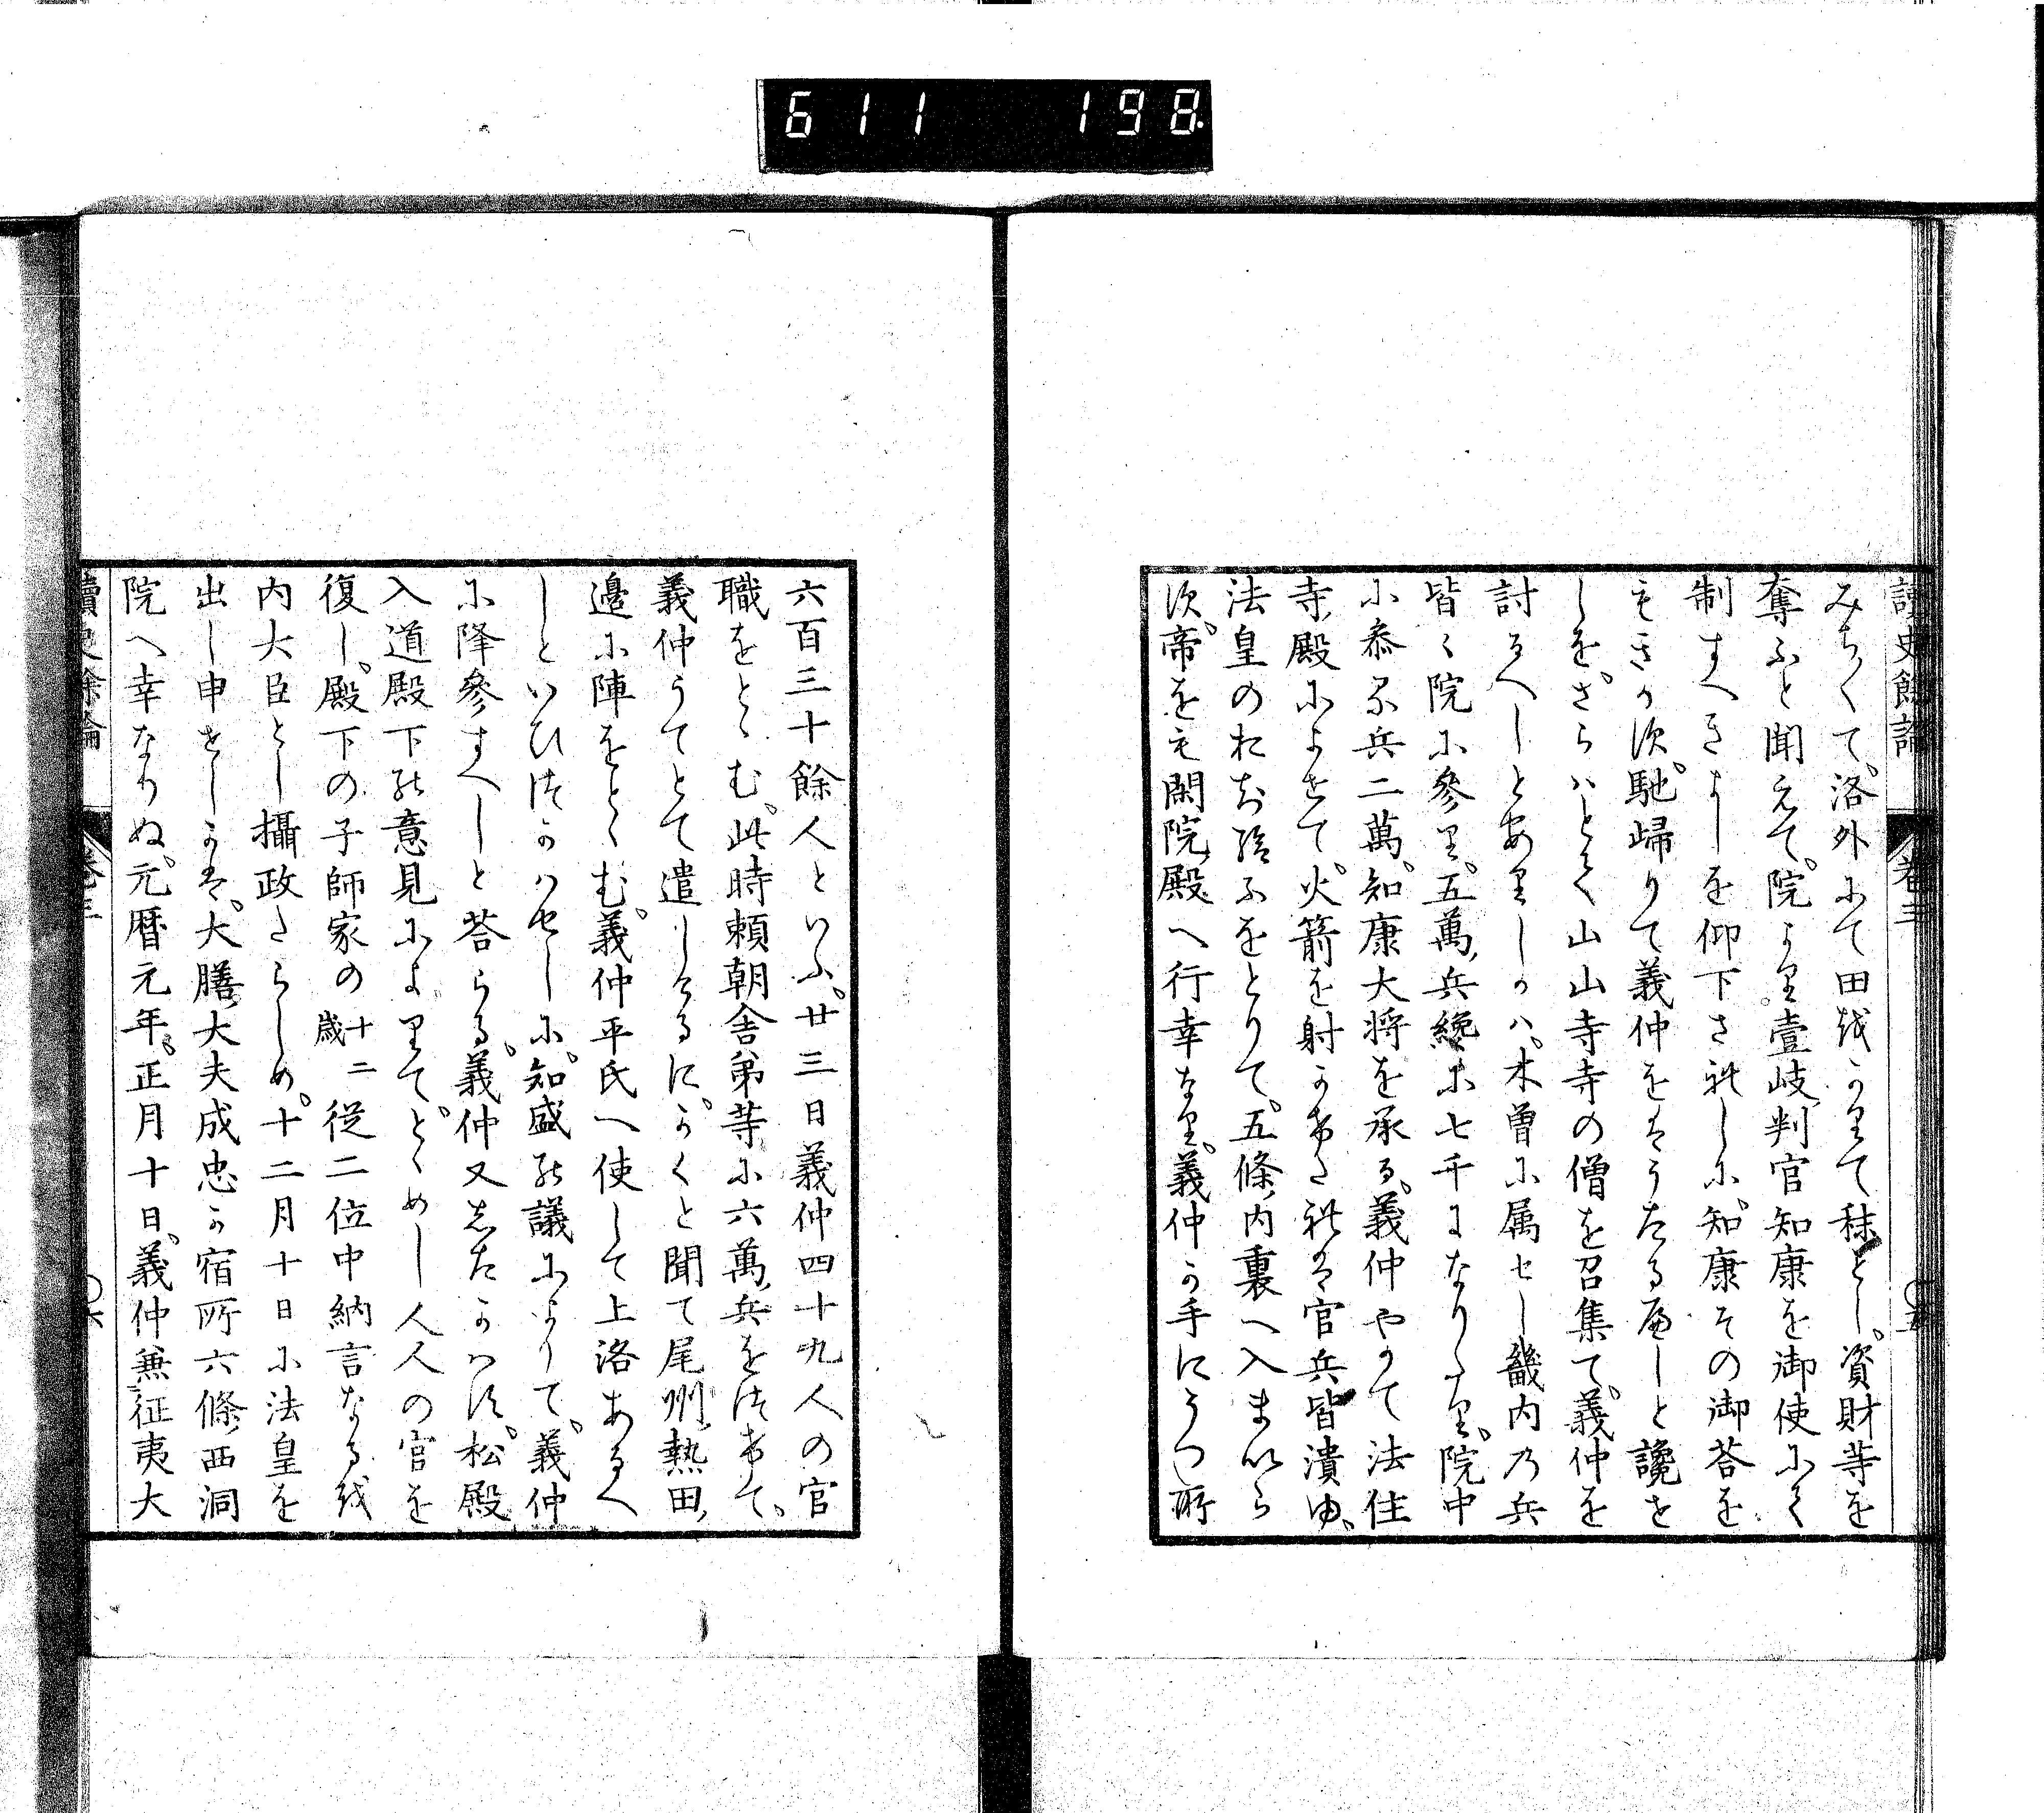 6 1 1　1 9 8.
讀史餘論　卷三　〇五
みち〱て。洛外にて田をかりて秣とし。資財等を
奪ふと聞えて。院より。壹岐判官知康を御使にて
制すへきよしを仰下されしに。知康その御答を
もきかす。馳歸りて義仲をはうたるへしと讒せ
しを。さらはとて山山寺寺の僧を召集て。義仲を
討るへしとありしかは。木曽に属せし畿内乃兵
皆〻院に參り。五萬兵纔に七千になりたり。院中
に忝る兵二萬。知康大将を承る。義仲やかて法住
寺殿によせて。火箭を射かけたれは官兵皆潰ゆ。
法皇のおち給ふをとりて。五條内裏へ入まいら
す。帝をも閑院殿へ行幸なり。義仲か手にうつ所
六百三十餘人といふ。廿三日義仲四十九人の官
職をとゝむ。此時頼朝舎弟等に六萬兵をつけて。
義仲うてとて遣しけるに。かくと聞て尾州熱田
邊に陣をとゝむ。義仲平氏へ使して上洛あるへ
しといひつかはせしに。知盛の議によりて。義仲
に降參すへしと荅らる。義仲又したかはす。松殿
入道殿下の意見によりて。とゝめし人人の官を
復し。殿下の子師家の十二歳從二位中納言なるを
内大臣とし攝政たらしめ。十二月十日に法皇を
出し申せしかは。大膳大夫成忠か宿所六條西洞
院へ幸なりぬ。元暦元年。正月十日。義仲兼征夷大
讀史餘論　卷三　〇六